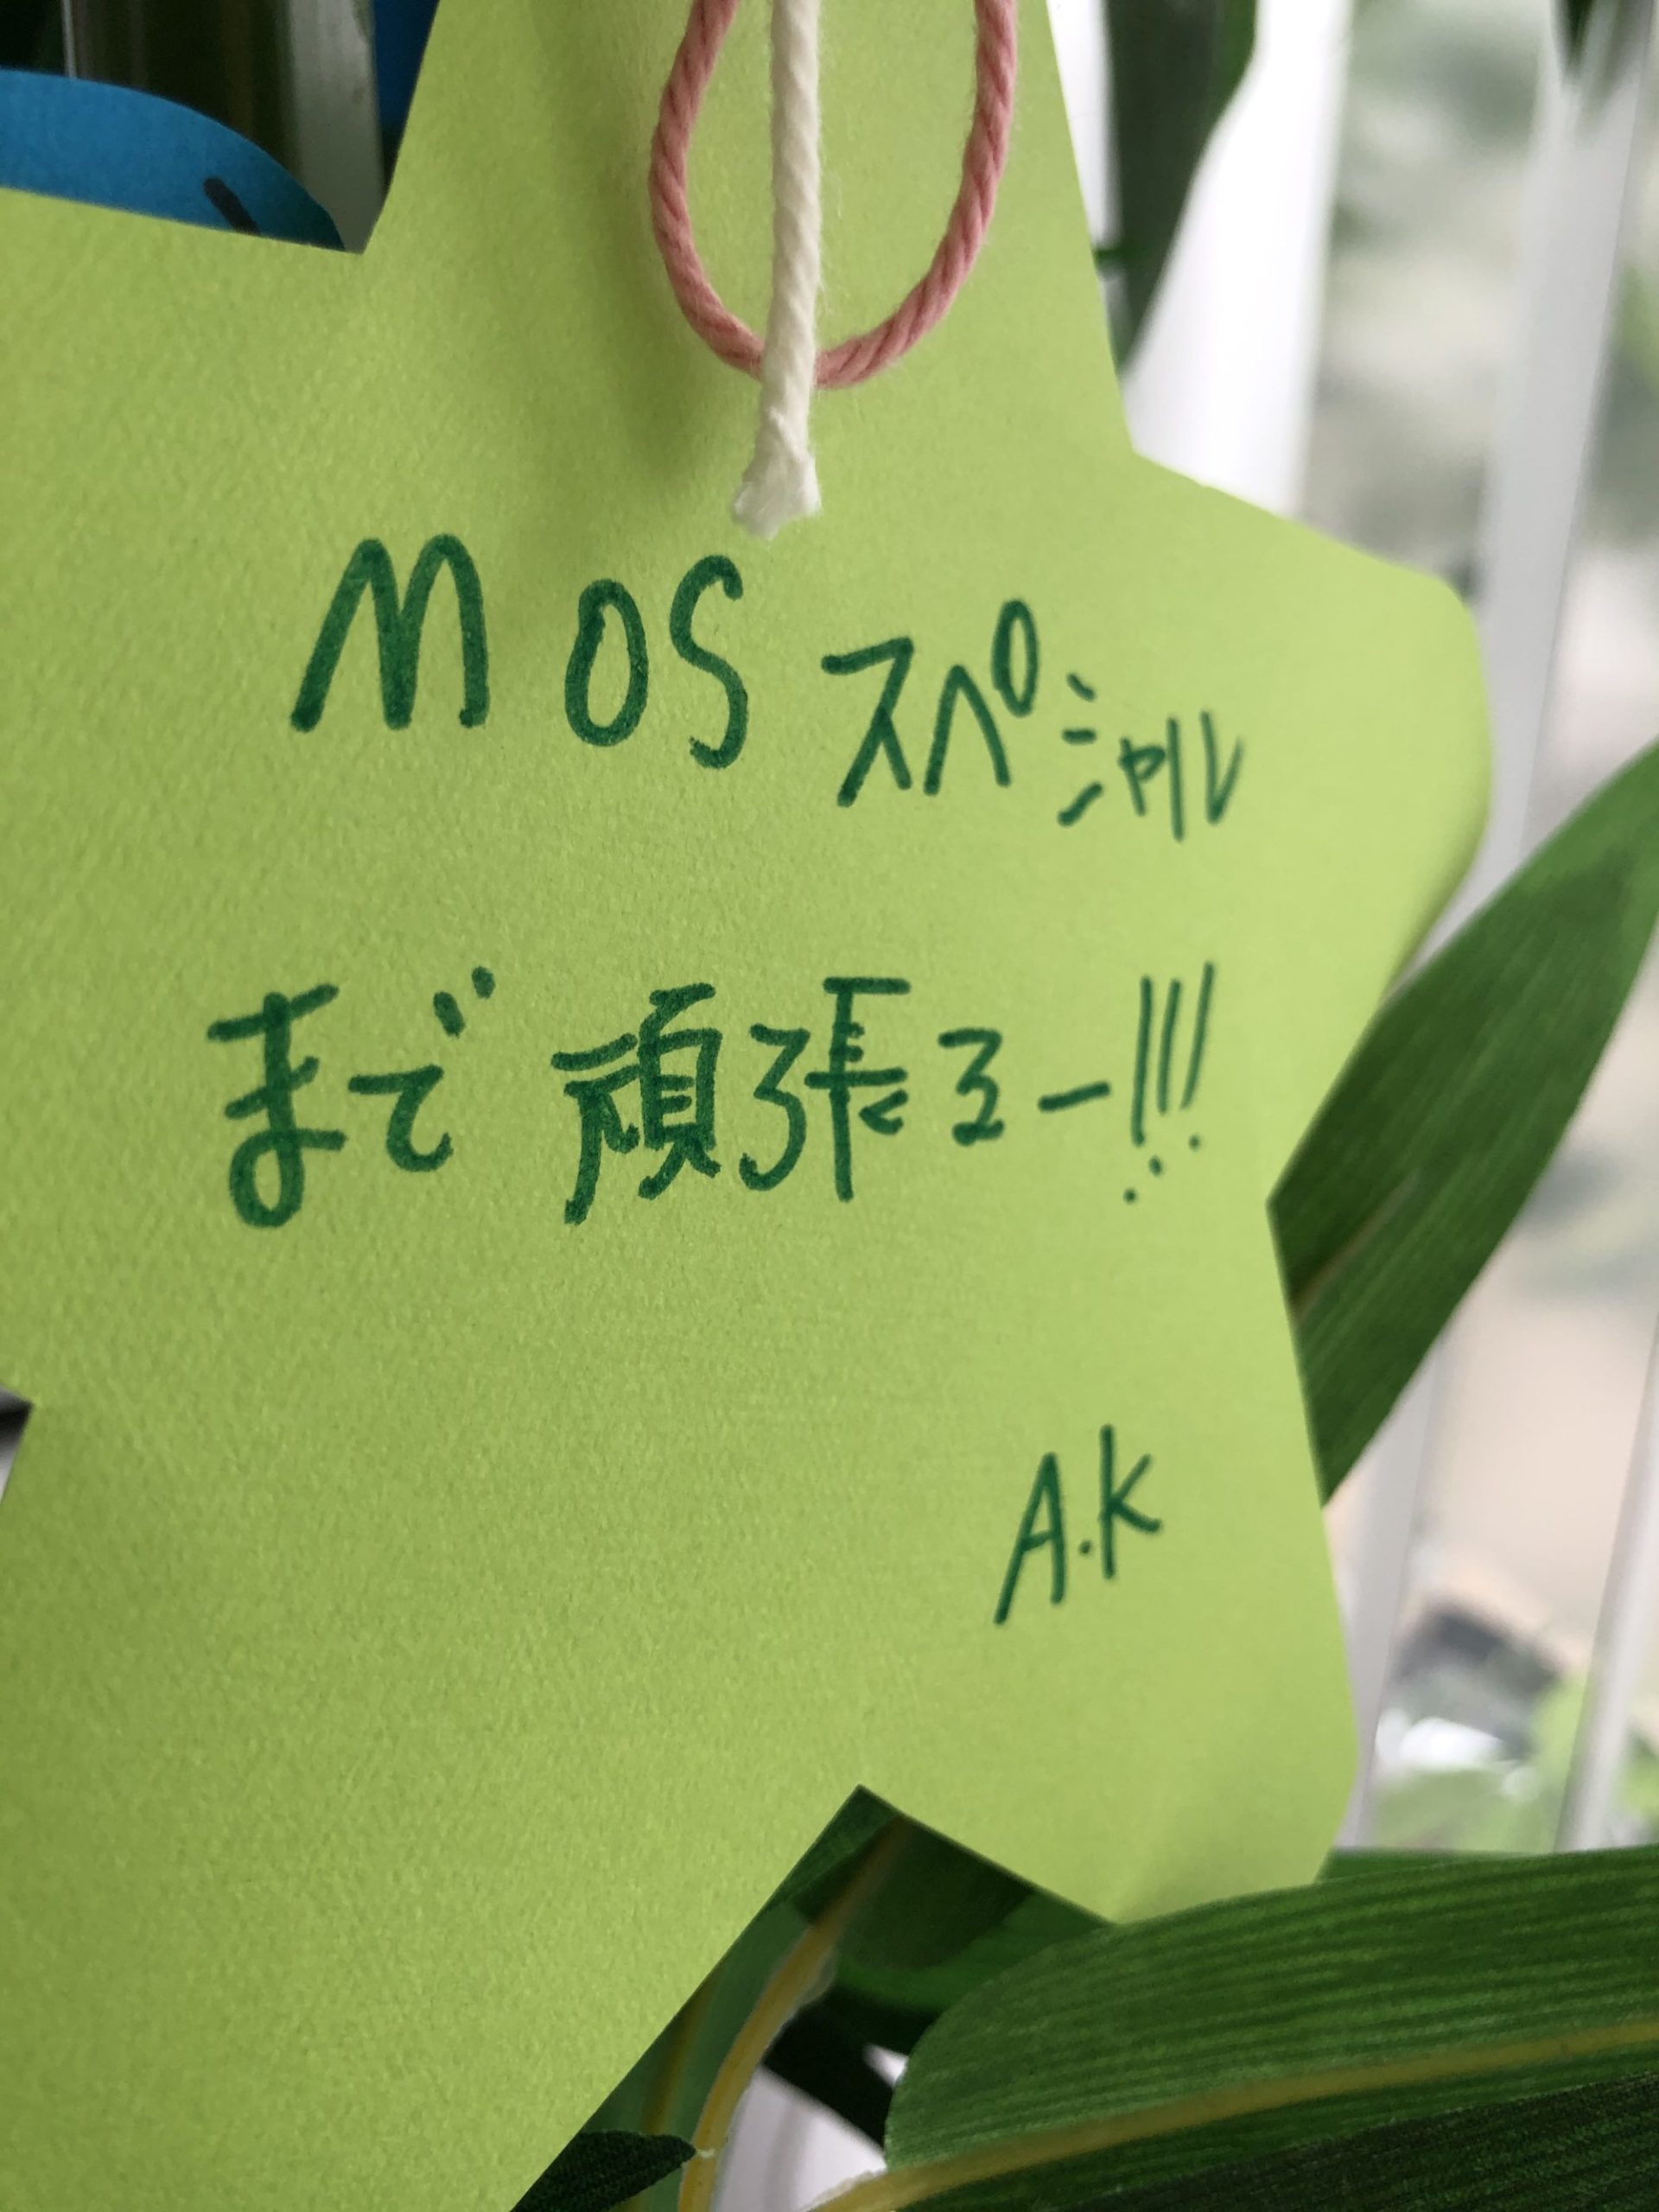 MOS スペシャル
まで 頑張るー!!!
A.K